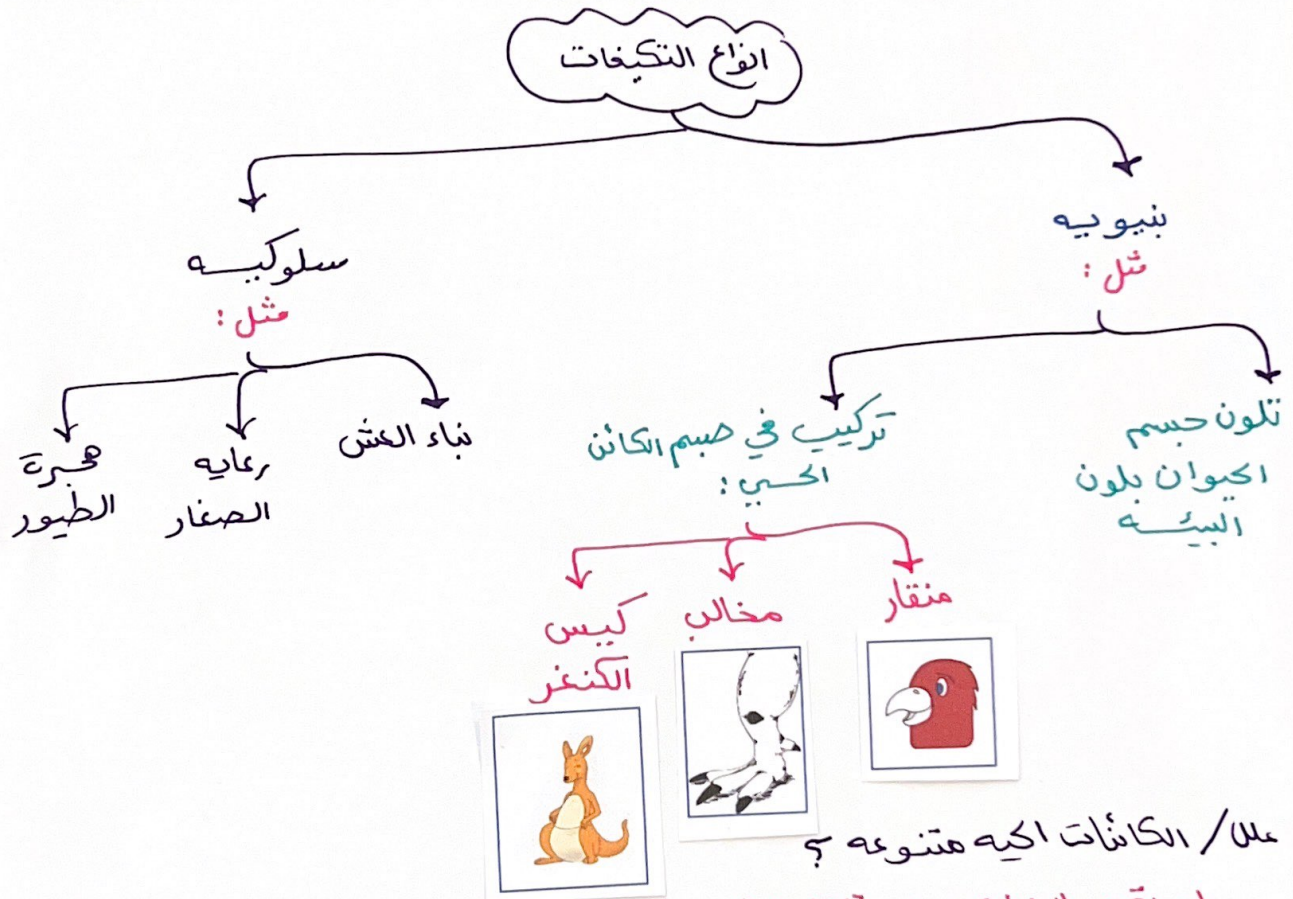 انواع التكيفات
بنيويه
مثل :
تلون جسم
الحيوان بلون
البيئـه
تركيب في جسم الكائن
الحـي :
منقار
مخالب
كيس
الكنغر
سلوكيـه
مثل :
بناء العش
رعايه
الصغار
هجرة
الطيور
علل / الكائنات الحيه متنوعه ؟